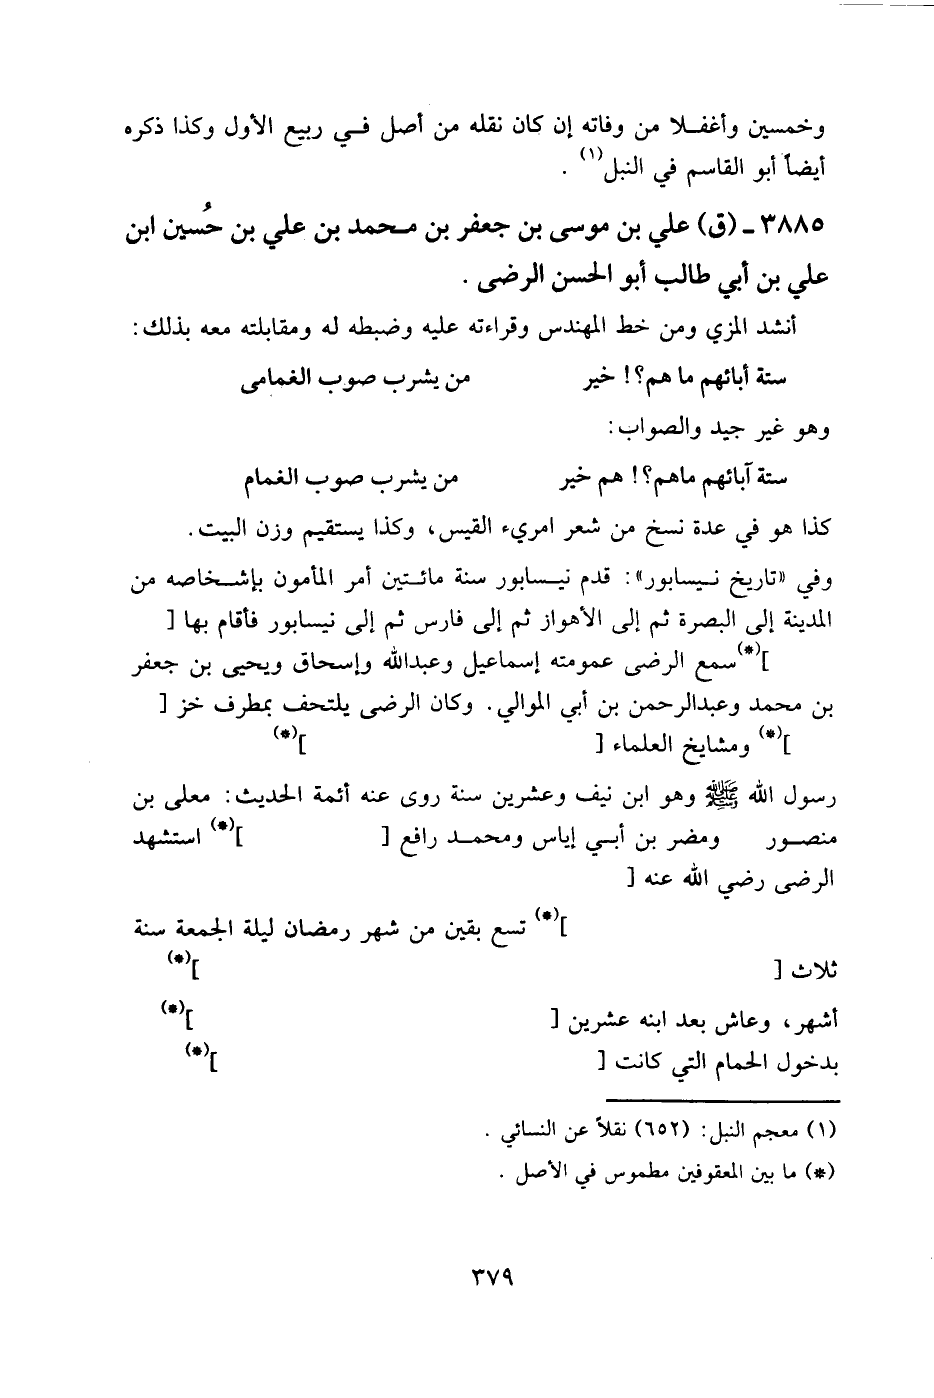 وخمسين وأغفلا من وفاته إن كان نقله من أصل في ربيع الأول وكذا ذكره
أيضاً أبو القاسم في النبل(١) .
٣٨٨٥ - (ق) علي بن موسى بن جعفر بن محمد بن علي بن حُسين ابن
علي بن أبي طالب أبو الحسن الرضى .
أنشد المزي ومن خط المهندس وقراءته عليه وضبطه له ومقابلته معه بذلك:
ستة أبائهم ما هم؟! خير من يشرب صوب الغمامى
وهو غير جيد والصواب:
ستة آبائهم ماهم؟! هم خير من يشرب صوب الغمام
كذا هو في عدة نسخ من شعر امريء القيس، وكذا يستقيم وزن البيت.
وفي «تاريخ نيسابور»: قدم نيسابور سنة مائتين أمر المأمون بإشخاصه من
المدينة إلى البصرة ثم إلى الأهواز ثم إلى فارس ثم إلى نيسابور فأقام بها [
](*) سمع الرضى عمومته إسماعيل وعبدالله وإسحاق ويحيى بن جعفر
بن محمد وعبدالرحمن بن أبي الموالي. وكان الرضى يلتحف بمطرف خز [
](*) ومشايخ العلماء [ ](*)
رسول الله ﷺ وهو ابن نيف وعشرين سنة روى عنه أئمة الحديث: معلى بن
منصور ومضر بن أبي إياس ومحمد رافع [ ](*) استشهد
الرضى رضي الله عنه [
](*) تسع بقين من شهر رمضان ليلة الجمعة سنة
ثلاث [ ](*)
أشهر، وعاش بعد ابنه عشرين [ ](*)
بدخول الحمام التي كانت [ ](*)
(١) معجم النبل: (٦٥٢) نقلاً عن النسائي .
(*) ما بين المعقوفين مطموس في الأصل .
٣٧٩